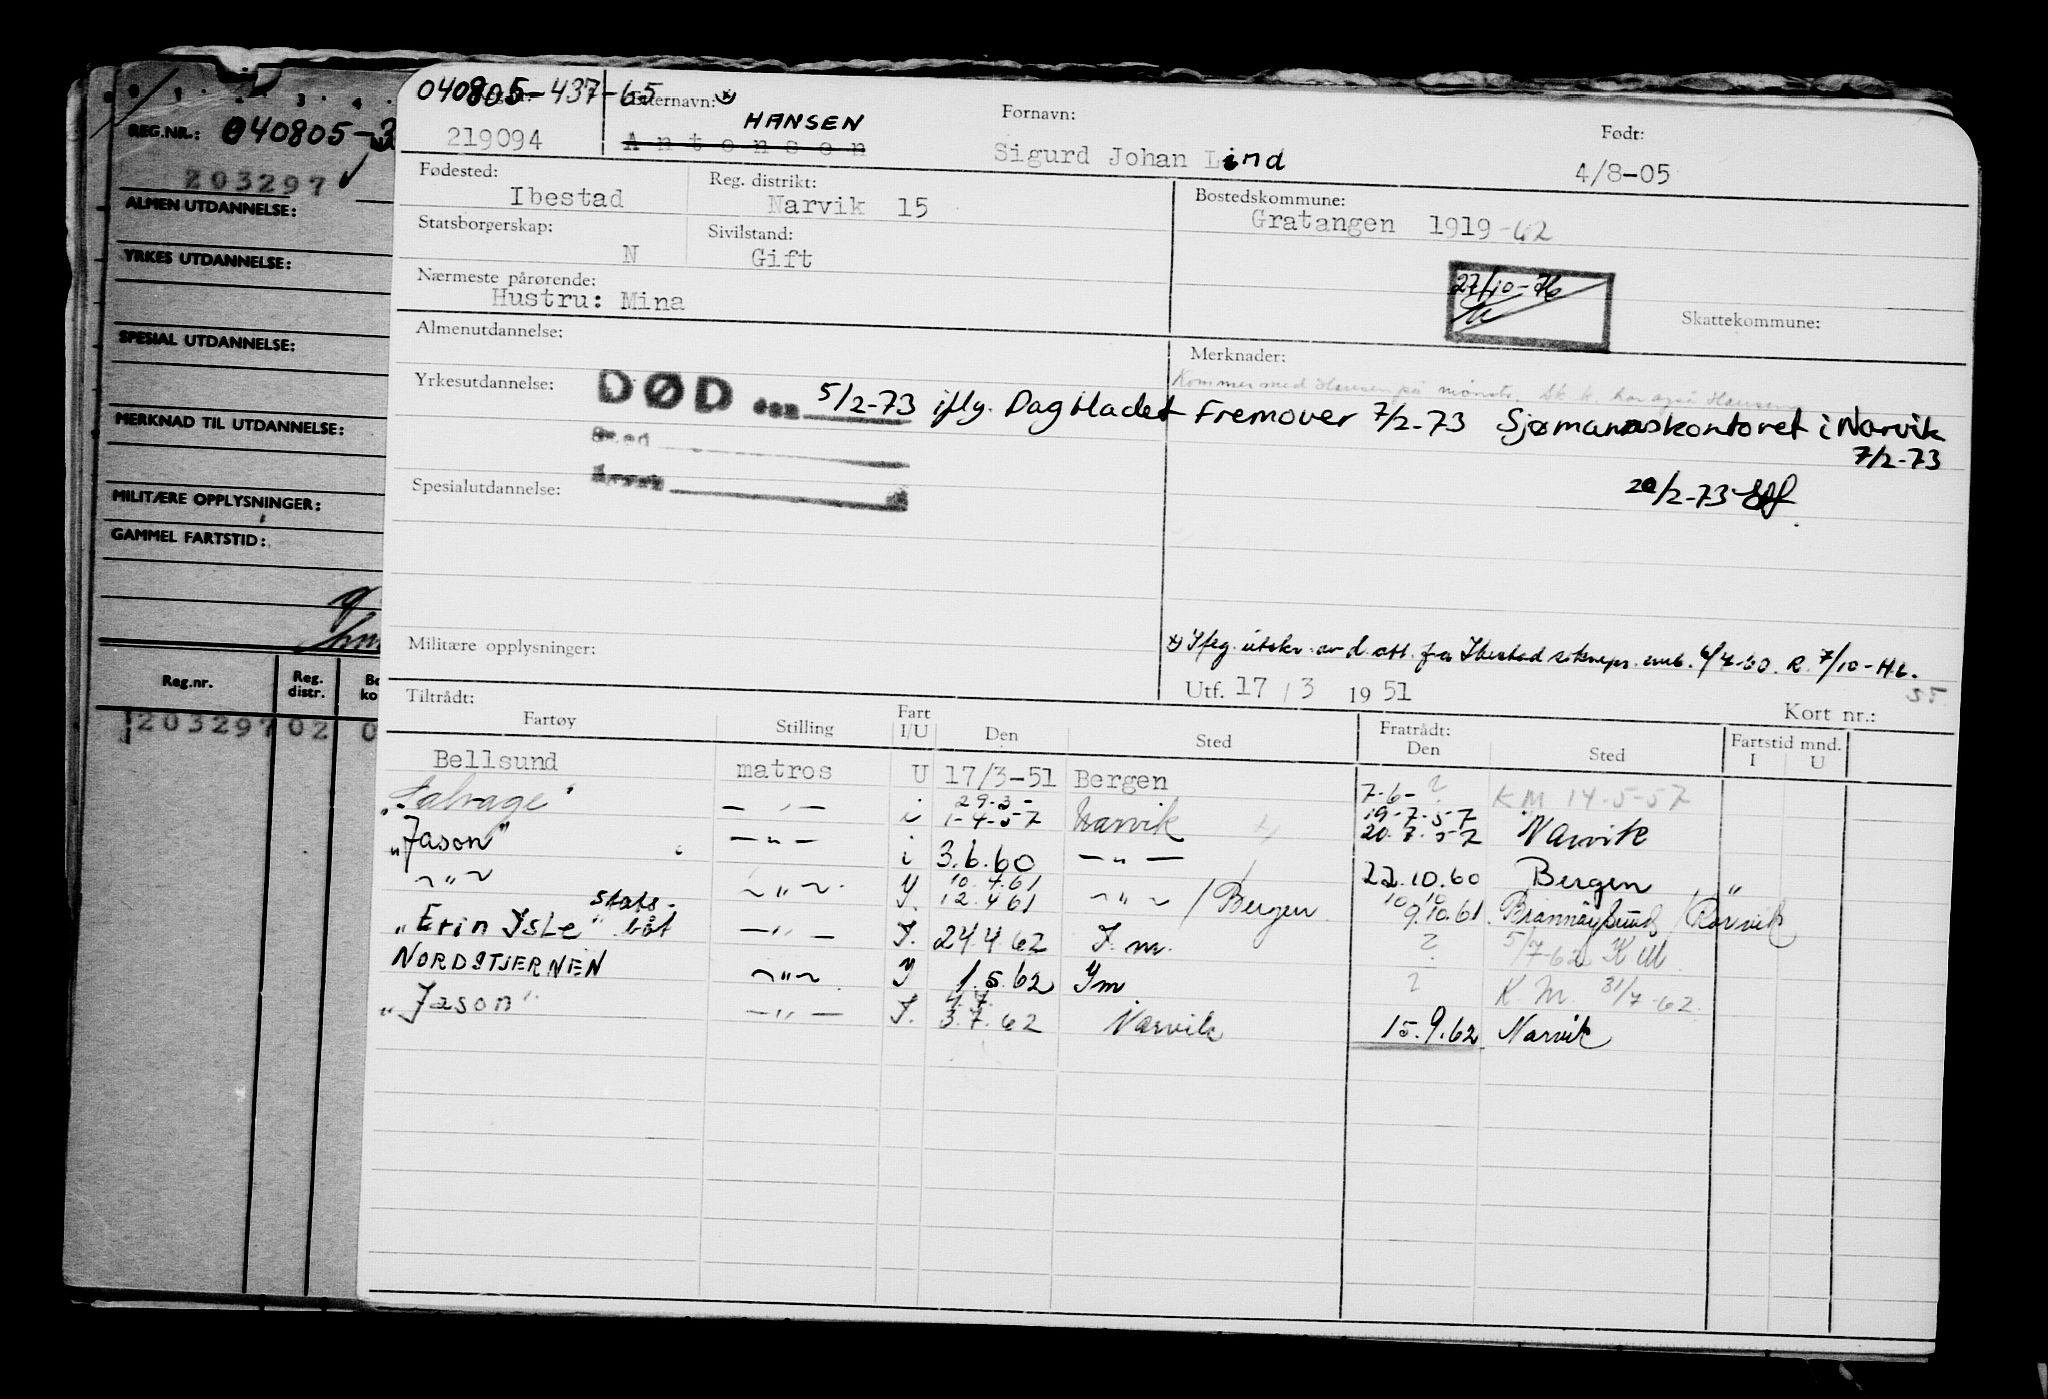 REG.NR.: 040805-3
203297 ✓
ALMEN UTDANNELSE:
YRKES UTDANNELSE:
SPESIAL UTDANNELSE:
MERKNAD TIL UTDANNELSE:
MILITÆRE OPPLYSNINGER:
GAMMEL FARTSTID:
Reg.nr. Reg. distr.
203297 02 0
040805-437-65 Etternavn: HANSEN Fornavn: Født:
219094 Antonsen Sigurd Johan Lind 4/8-05
Fødested: Reg. distrikt: Bostedskommune:
Ibestad Narvik 15 Gratangen 1919-62
Statsborgerskap: Sivilstand:
N Gift
27/10-76
Nærmeste pårørende:
Hustru: Mina
Skattekommune:
Almenutdannelse: Merknader:
Kommer med Hansen på mønstr. har også Hansen
Yrkesutdannelse: DØD den 5/2-73 iflg. Dagbladet Fremover 7/2-73 Sjømannskontoret i Narvik
7/2-73
Sted
Spesialutdannelse: Årsak
20/2-73
Militære opplysninger:
x) Iflg. utskr. av d.att. fra Ibestad soknepr. emb. 6/4-60. R. 7/10-H6.
Utf. 17/3 1951 55
Tiltrådt: Kort nr.:
Fartøy Stilling Fart I/U Den Sted Fratrådt: Den Sted Fartstid mnd. I U
Bellsund matros U 17/3-51 Bergen 7-6- ? K.M 14-5-57
"Salvage" — " — i 29-3- 1-4-57 Narvik 19-7-57 20.7.57 Narvik
"Jason" — " — i 3.6.60 — " — 22.10.60 Bergen "
~ " ~ ~ " ~ Y. 10.4.61 12.4 61 ~ " ~ / Bergen 10 10 9.10.61 Brønnøysund / Rørvik
"Erin Isle" stats. båt — " — I. 24.4.62 I.m. ? 5/7-62 K M
NORDSTJERNEN ~ " ~ Y 1.5.62 Ym ? K.M. 31/7-62
"Jason" — " — I. 4.7. 3.7.62 Narvik 15.9.62 Narvik